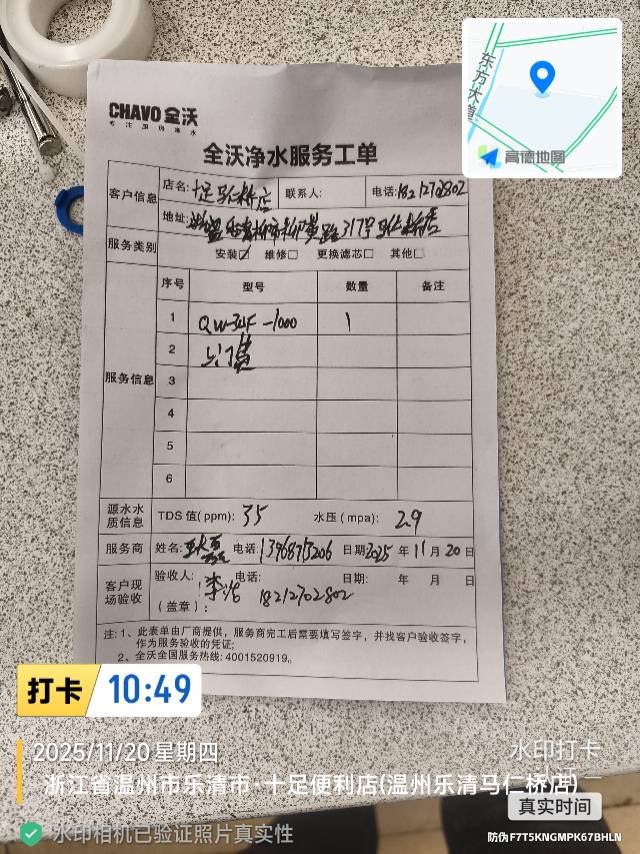 东方大道
高德地图
CHAVO 全沃
专注厨房净水
全沃净水服务工单
客户信息 店名: 十足马仁桥店 联系人: 电话: 18212702802
地址: 317号马仁桥店
服务类别 安装☑ 维修□ 更换滤芯□ 其他□
服务信息 序号 型号 数量 备注
1 -1000 1
2 上门费
3
4
5
6
源水水质信息 TDS 值(ppm): 35 水压(mpa): 2.9
服务商 姓名: 电话: 日期: 2025年11月20日
客户现场验收 验收人: 李 电话: 18212702802 日期: 年 月 日
(盖章):
注: 1、此表单由厂商提供，服务商完工后需要填写签字，并找客户验收签字，
作为服务验收的凭证;
2、全沃全国服务热线: 4001520919。
打卡 10:49
2025/11/20 星期四
浙江省温州市乐清市·十足便利店(温州乐清马仁桥店)
水印打卡
真实时间
水印相机已验证照片真实性
防伪F7T5KNGMPK67BHLN